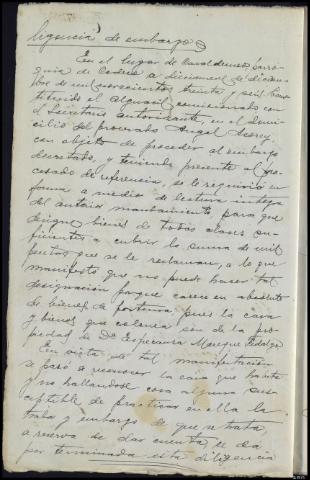 ligencia de embargo
En el lugar de Casaldemuro parro-
quia de Cedeira a diecinueve de diciem-
bre de mil novecientos treinta y seis, cons-
tituido el Alguacil comisionado con
el Secretario autorizante, en el domi-
cilio del procesado Angel
con objeto de proceder al embargo
decretado, y teniendo presente al pro-
cesado de referencia, se le requirió en
forma a medio de lectura integra
del anterior mandamiento, para que
designe bienes de todas clases su-
ficientes a cubrir la suma de mil
pesetas que se le reclaman, a lo que
manifestó que no puede hacer tal
designación porque carece en absoluto
de bienes de fortuna pues la casa
y bienes que calenda son de la pro-
piedad de Dª Esperanza Hidalgo
En vista de tal manifestación
se pasó a reconocer la casa que habita
y no hallandose cosa alguna sus-
ceptible de practicar en ella la
traba y embargo de que se trata
a reserva de dar cuenta se da
por terminada esta diligencia